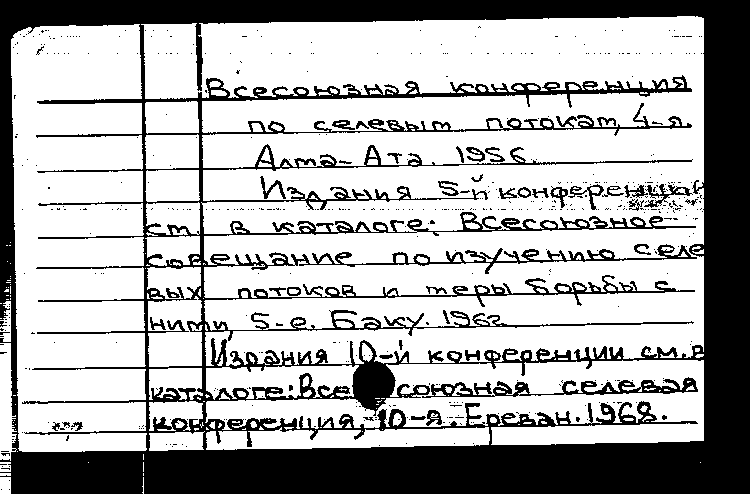 Всесоюзная конференция
по селевым потокам, 4-я.
Алма-Ата. 1956.
Издания 5-й конференции
см. в каталоге: Всесоюзное
совещание по изучению селе
вых потоков и меры борьбы с
ними, 5-е. Баку. 1962
Издания 10-й конференции см. в
каталоге: Всесоюзная селевая
конференция, 10-я. Ереван. 1968.